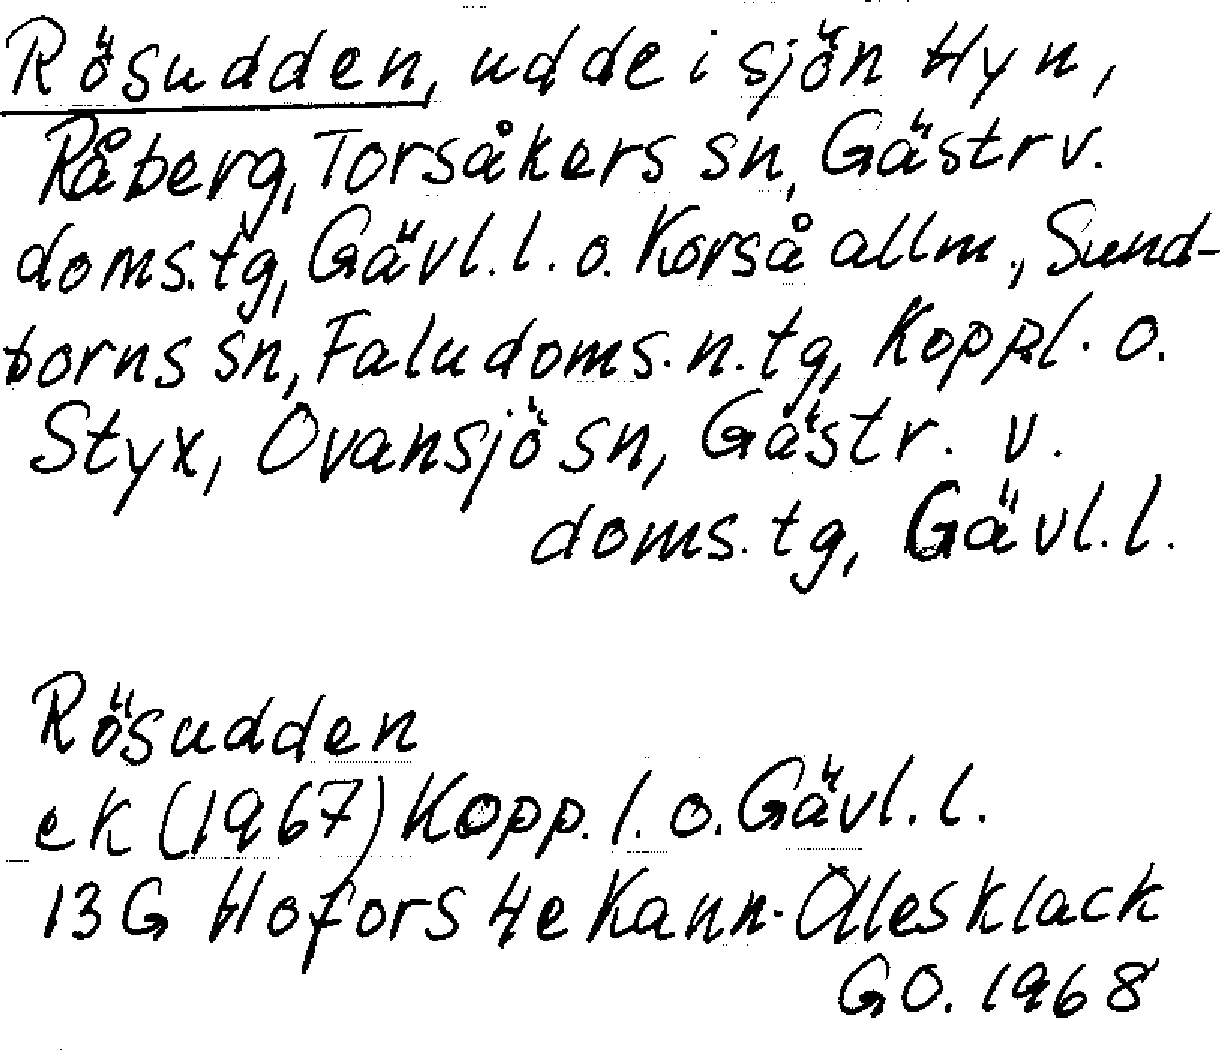 Rösudden, udde i sjön Hyn,
Råberg, Torsåkers sn, Gästr v.
doms.tg, Gävl.l. o. Korså allm., Sund-
borns sn, Falu doms. n. tg, Koppl. o.
Styx, Ovansjö sn, Gästr. v.
doms. tg, Gävl.l.
Rösudden
ek (1967) Kopp. l. o. Gävl. l.
13G Hofors 4e Kann-Ollesklack
GO. 1968